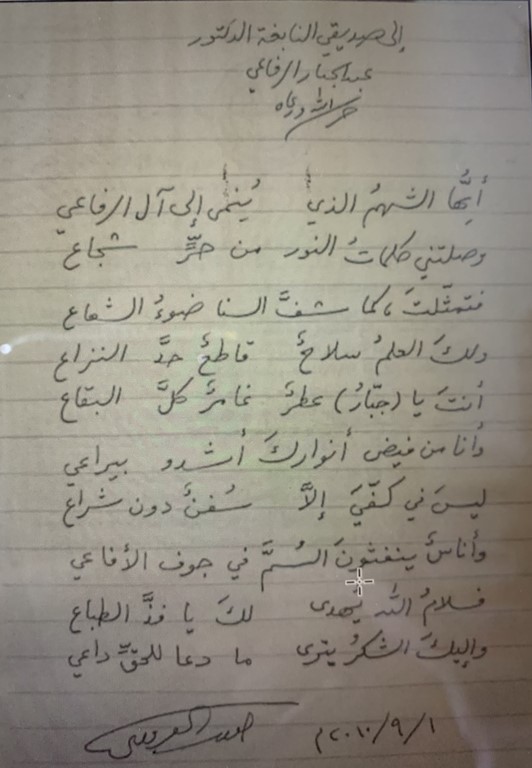 إلى صديقي النابغة الدكتور
عبد الجبار الرفاعي
حرسه الله ورعاه
أيُّها الشهمُ الذي يُنمى إلى آل الرفاعي
وصلتني كلماتُ النور من حرٍّ شجاع
فتمثّلتَ، كما شفَّ السنا ضوءُ الشعاع
ولكَ العلمُ سلاحٌ قاطعٌ حدَّ النزاع
أنتَ يا (جبّارُ) عطرٌ غامرٌ كلَّ البقاع
وأنا من فيض أنواركَ أشدو بيراعي
ليسَ في كفّيَ إلاَّ سُفنٌ دون شراع
وأناسٌ ينفثونَ السُمَّ في جوف الأفاعي
فسلامُ الله يُهدى لكَ يا فذَّ الطباع
وإليكَ الشكرُ يترى ما دعا للحقِّ داعي
٢٠١٠/٩/١م